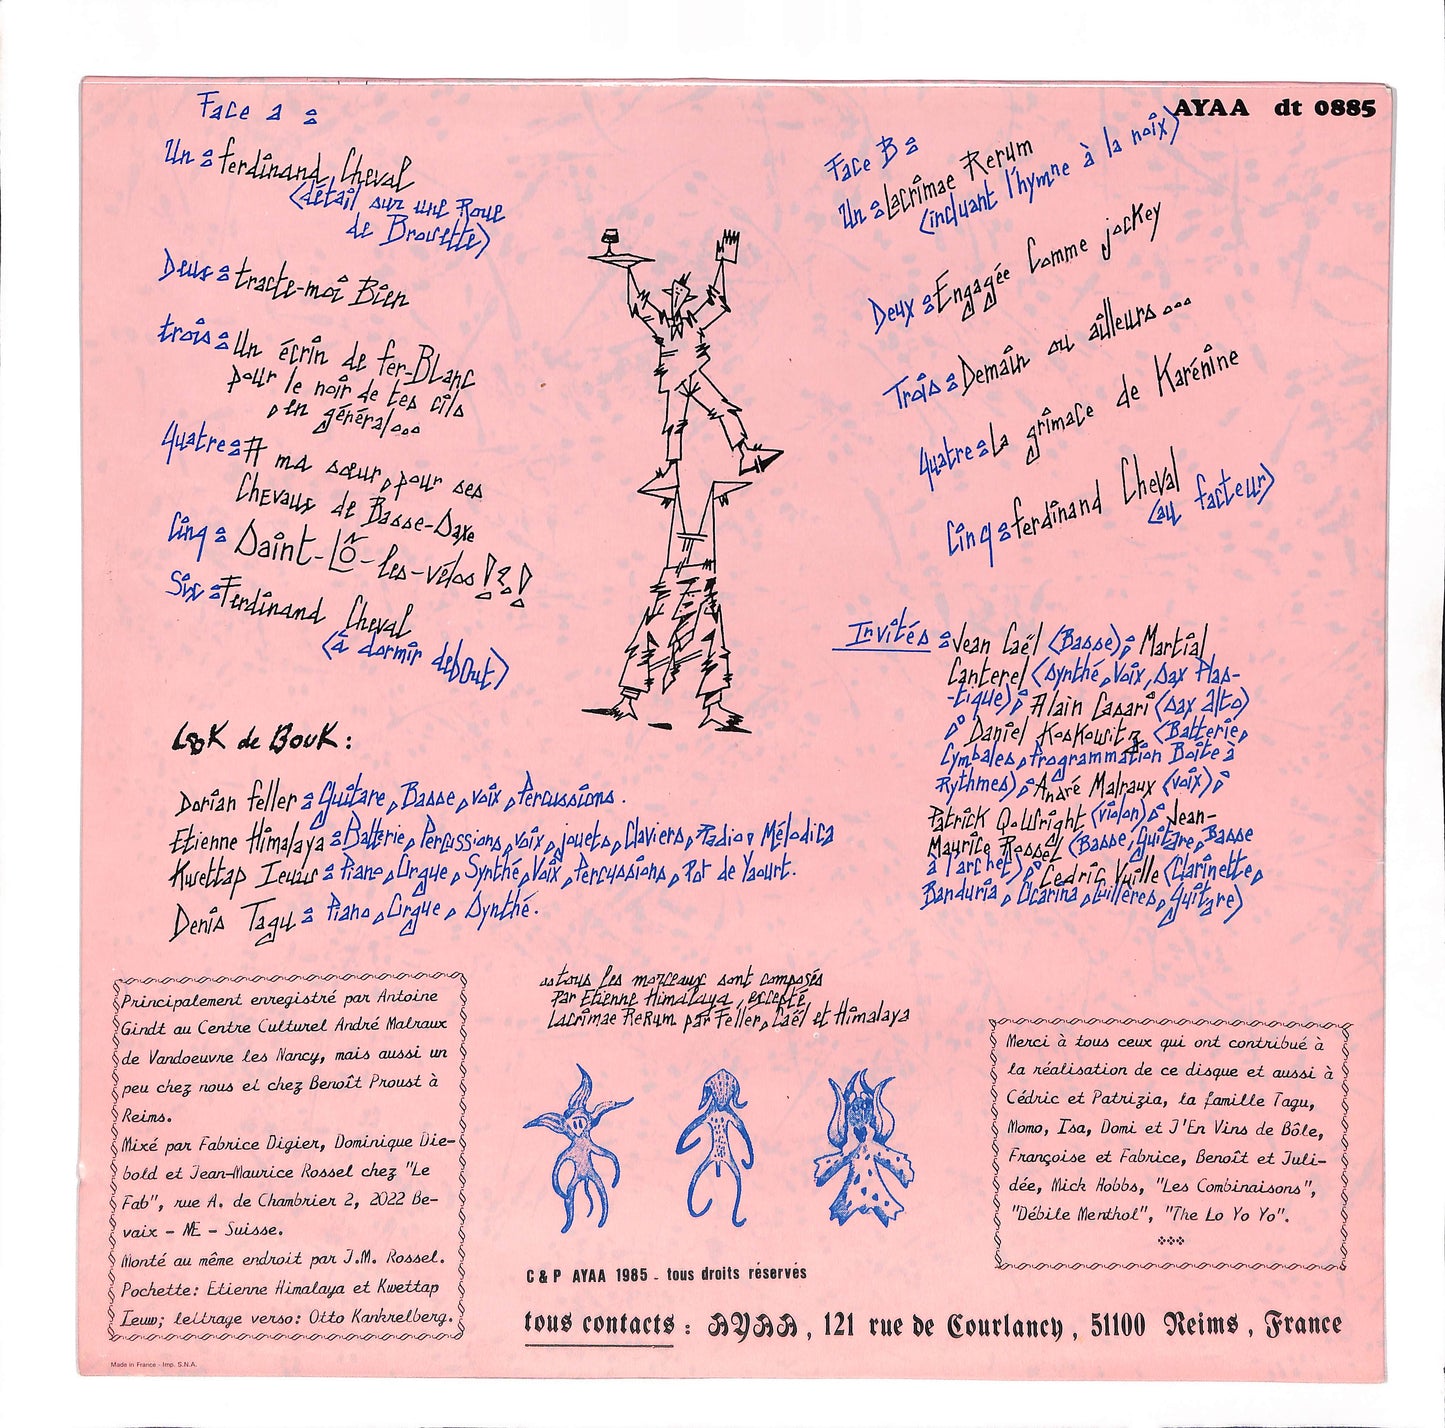 AYAA dt 0885
Face a :
Un : ferdinand Cheval
(détail sur une Roue
de Brouette)
Deux : tracte-moi Bien
trois : Un écrin de fer-Blanc
pour le noir de tes cils
, en général...
Quatre : A ma sœur, pour ses
CHEvaux de Basse-Saxe
Cinq : Saint-Lô-les-vélos !?!
Six : Ferdinand Cheval
(à dormir debout)
Face B :
Un : Lacrimae Rerum
(incluant l'hymne à la noix)
Deux : Engagée Comme jockey
Trois : Demain ou ailleurs...
Quatre : La grimace de Karénine
Cinq : ferdinand Cheval
(au facteur)
Invités : Jean Caël (Basse); Martial
Canterel (synthé, Voix, sax Plas-
-tique); Alain Casari (sax alto)
; Daniel Koskowitz (Batterie,
Cymbales, Programmation Boite à
Rythmes); André Malraux (voix);
Patrick Q. Wright (violon); Jean-
Maurice Rossel (Basse, guitare, Basse
à l'archet); Cédric Vuille (Clarinette,
Banduria, Ocarina, Cuillères, guitare)
LOOK de BOUK :
Dorian feller : Guitare, Basse, voix, Percussions.
Etienne Himalaya : Batterie, Percussions, voix, jouets, Claviers, Radio, Mélodica
Kwettap Ieuw : Piano, Orgue, Synthé, Voix, Percussions, Pot de Yaourt.
Denis Tagu : Piano, Orgue, Synthé.
Principalement enregistré par Antoine
Gindt au Centre Culturel André Malraux
de Vandoeuvre les Nancy, mais aussi un
peu chez nous et chez Benoît Proust à
Reims.
Mixé par Fabrice Digier, Dominique Die-
bold et Jean-Maurice Rossel chez "Le
Fab", rue A. de Chambrier 2, 2022 Be-
vaix - NE - Suisse.
Monté au même endroit par J.M. Rossel.
Pochette: Etienne Himalaya et Kwettap
Ieuw; lettrage verso: Otto Kankrelberg.
tous les morceaux sont composés
par Etienne Himalaya, excepté
Lacrimae Rerum par Feller, Caël et Himalaya
Merci à tous ceux qui ont contribué à
la réalisation de ce disque et aussi à
Cédric et Patrizia, la famille Tagu,
Momo, Isa, Domi et J'En Vins de Bôle,
Françoise et Fabrice, Benoît et Juli-
dée, Mick Hobbs, "Les Combinaisons",
"Débile Menthol", "The Lo Yo Yo".
C & P AYAA 1985 - tous droits réservés
tous contacts : AYAA, 121 rue de Courlancy, 51100 Reims, France
Made in France - Imp. S.N.A.